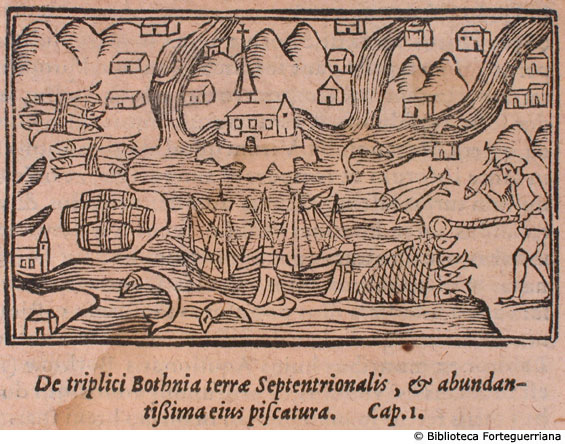 De triplici Bothnia terræ Septentrionalis, & abundan-
tißima eius piscatura. Cap. 1.
© Biblioteca Forteguerriana